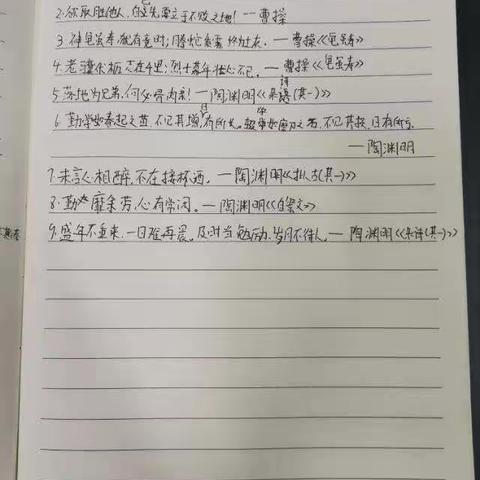 2.欲取胜他人,自己先需立于不败之地! — 曹操
3.神龟虽寿,犹有竟时;腾蛇乘雾,终为土灰。— 曹操《龟虽寿》
4.老骥伏枥,志在千里;烈士暮年,壮心不已。— 曹操《龟虽寿》
5.落地为兄弟,何必骨肉亲! — 陶渊明《杂诗(其一)》
6.勤学如春起之苗,不见其增,日有所长。辍学如磨刀之石,不见其损,日有所亏。
— 陶渊明
7.未言心相醉,不在接杯酒。— 陶渊明《拟古(其一)》
8.勤靡余劳,心有常闲。— 陶渊明《自祭文》
9.盛年不重来,一日难再晨。及时当勉励,岁月不待人。— 陶渊明《杂诗(其一)》